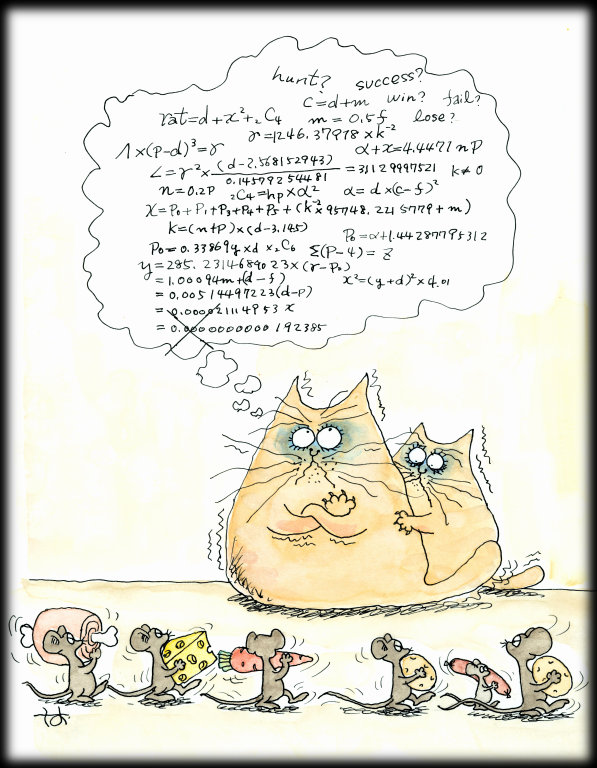 hunt? success?
c=d+m win? fail?
rat=d+x²+₂C₄ m=0.5f lose?
r=1246.37978×k⁻²
1×(P-d)³=r α+x=4.4471nP
L=r²×(d-2.568152943)/0.14579254481=31129997521 k≠0
n=0.2P ₂C₄=hp×α² α=d×(c-f)²
x=P₀+P₁+P₃+P₄+P₅+(k⁻²×95748.2215779+m)
k=(n+P)×(d-3.145)
P₀=α+1.44287795312
P₀=0.33869y×d×₂C₆ Σ(P-4)=z
y=285.2314689023×(r-P₀)
=1.00094m+(d-f) x²=(y+d)²×4.01
=0.00514497223(d-P)
=0.000021114953x
=0.0000000000192385